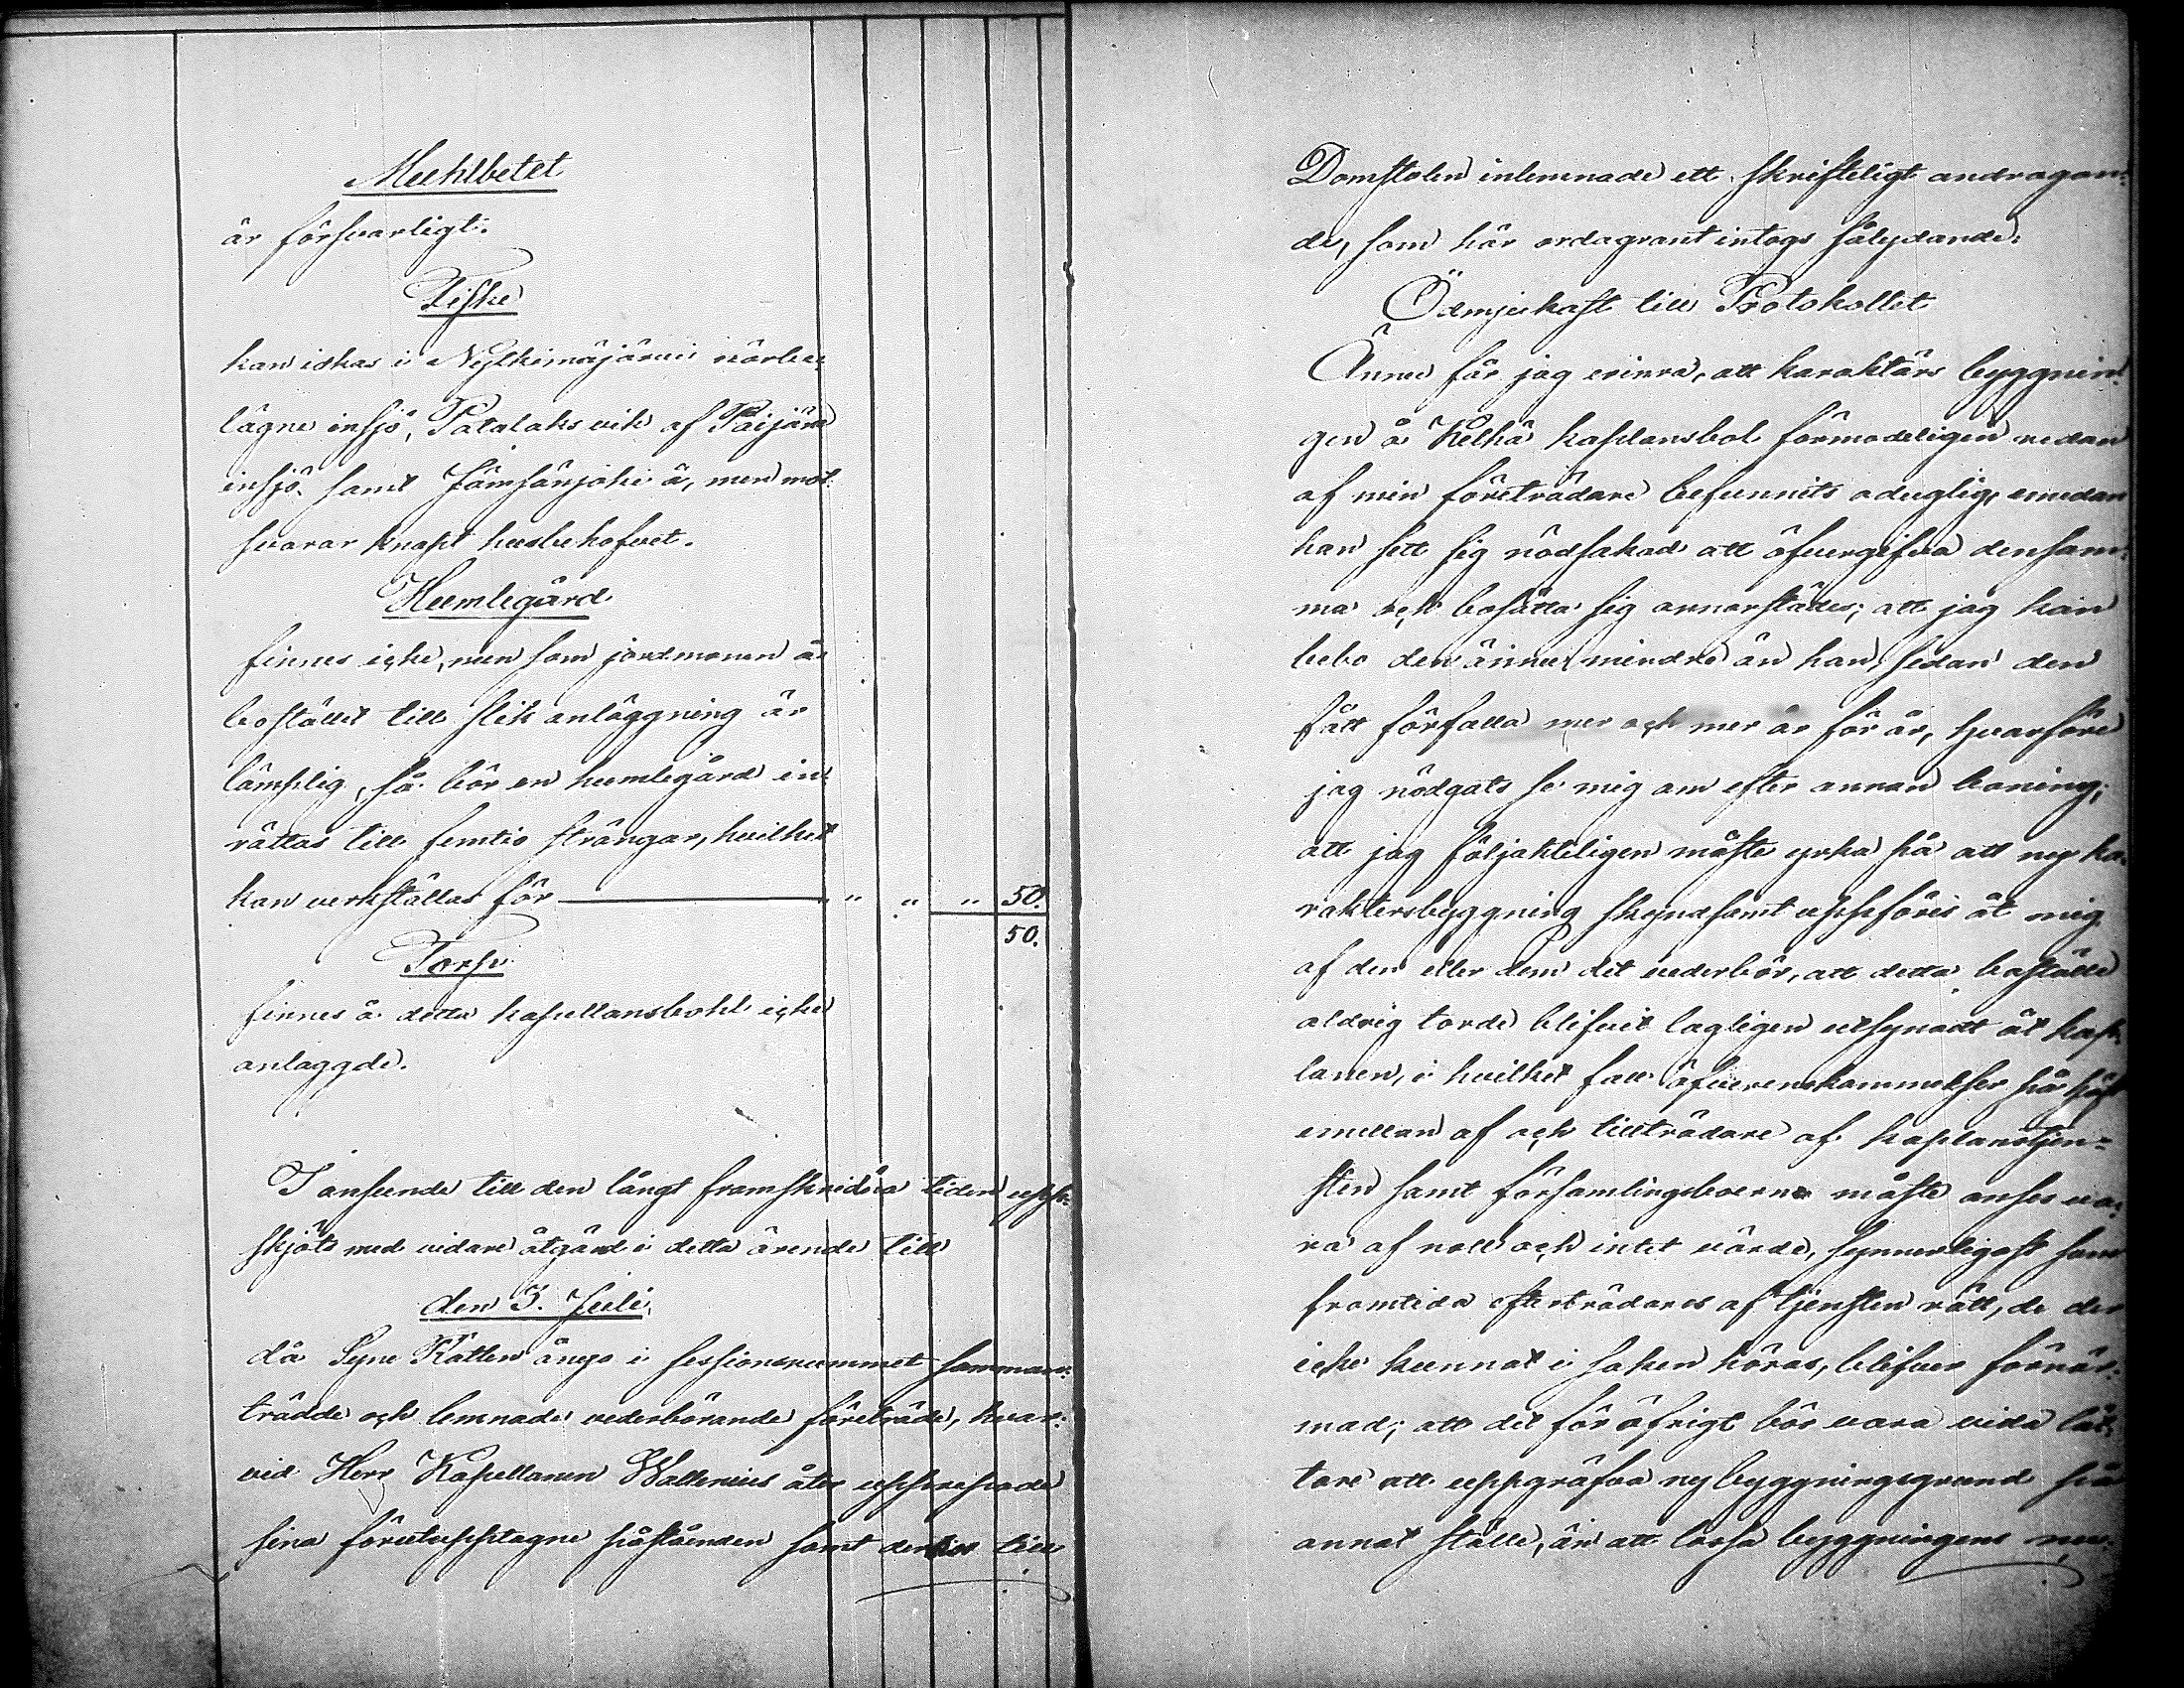 Muehlbetet
är försvarligt.
Fiske
kan idkas i Nytkimäjärvi närbe,,
lägne insjö, Patalaks vik af Päijäne
insjö. samt Jämsänjoki å, men mot
svarar knapt husbehofvet.
Humlegård
finnes icke, men som jordmonen å
bostället till slik anläggning är
lämplig, så bör en humlegård in
rättas till femtio stängar, hvilket
kan verkställas för " " " 50.
50.
Torp
finnes å detta kapellansbohl icke
anlaggde.
I anseende till den långt framskridna tiden upp-
skjöts med vidare åtgärd i detta ärende till
den 3. Juli,
då Syne Rätten ånyo i sessionsrummet samman-
trädde och lemnade vederbörande företräde, hvar-
vid Herr Kapellanen Wallenius åter upprepade
sina förutupptagne påståenden samt till
Domstolen inlemnade ett skrifteligt andragan-
de, som här ordagrant intogs sålydande:
Ödmjukast till Protokollet
Ännu får jag erinra, att karaktärs byggnin-
gen å Kelhä kaplansbol förmodeligen redan
af min företrädare befunnits oduglig, emedan
han sett sig nödsakad att öfvergifva densam-
ma och bosätta sig annorstädes; att jag kan
bebo den ännu mindre än han, sedan den
fått förfalla mer och mer år för år, hvarföre
jag nödgats se mig om efter annan boning;
att jag följakteligen måste yrka på att ny ka-
raktersbyggning skyndsamt uppföres åt mig
af den eller dem det vederbör, att detta boställe
aldrig torde blifvit lagligen utsynadt åt kap-
lanen, i hvilket fall öfverenskommelser här
emellan af och tillträdare af kaplanstjen-
sten samt församlingsboerne måste anses va-
ra af noll och intet värde, synnerligast som
framtida efterträdares af tjensten rätt, de der
icke kunnat i saken höras, blifver förnär-
mad; att det för öfrigt bör vara vida lät-
tare att uppgräfva ny byggningsgrund på
annat ställe, än att lossa byggningens nu-